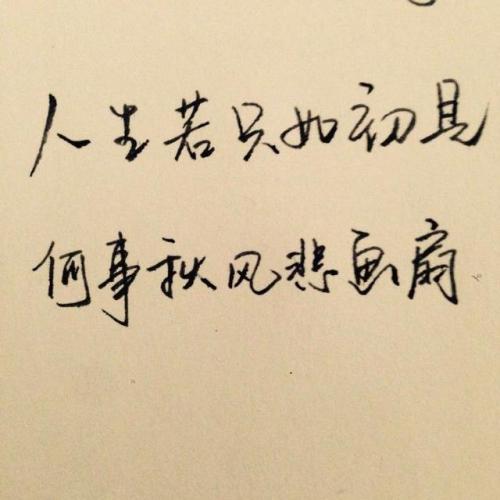 人生若只如初見
何事秋风悲画扇